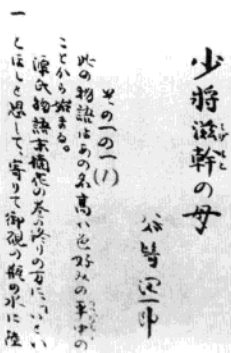 少将滋幹の母
しげもと
谷崎潤一郎
その一の一(1)
此の物語はあの名高い色好みの平中の
ことから始まる。
源氏物語末摘花の巻の終りの方に、「いとい
とほしと思して、寄りて御硯の瓶の水に陸
一